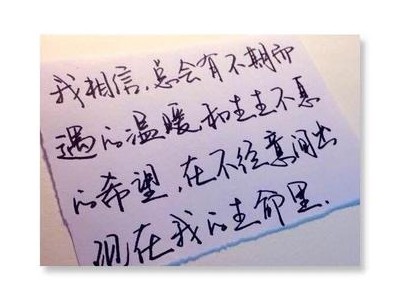 我相信,总会有不期而
遇的温暖,和生生不息
的希望,在不经意间出
现在我的生命里.